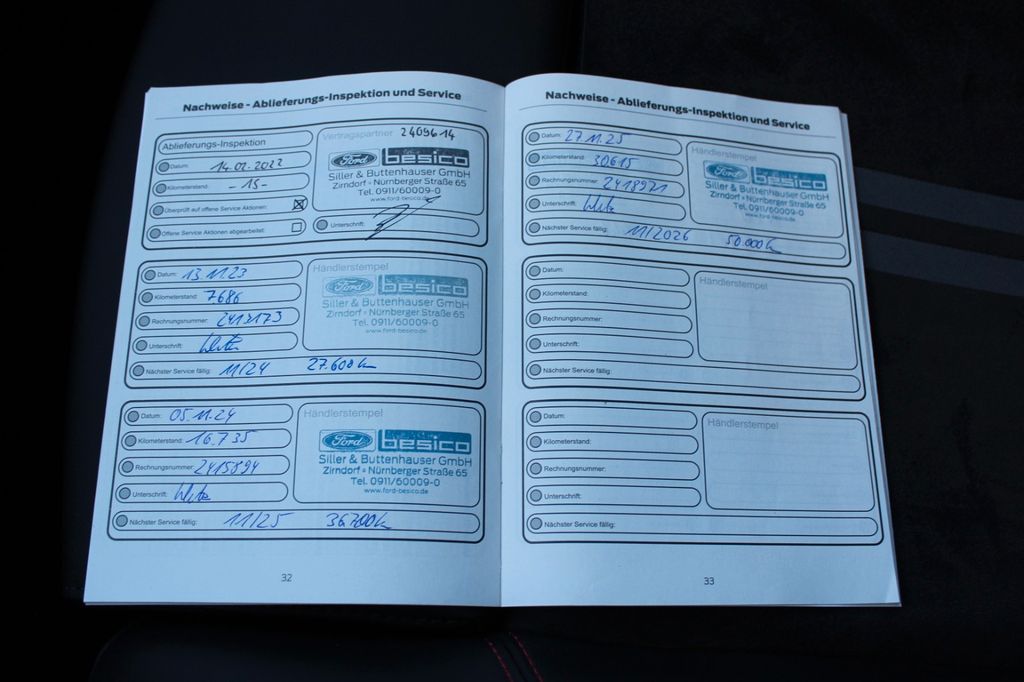 Nachweise - Ablieferungs-Inspektion und Service
Ablieferungs-Inspektion
Datum: 14.02.2022
Kilometerstand: - 15 -
Überprüft auf offene Service Aktionen: ☒
Offene Service Aktionen abgearbeitet: ☐
Vertragspartner
Ford besico
Siller & Buttenhauser GmbH
Zirndorf • Nürnberger Straße 65
Tel. 0911/60009-0
www.ford-besico.de
Unterschrift:
Datum: 13.11.23
Kilometerstand: 7.686
Rechnungsnummer: 2413173
Unterschrift:
Nächster Service fällig: 11/24 27.600 km
Händlerstempel
Ford besico
Siller & Buttenhauser GmbH
Zirndorf • Nürnberger Straße 65
Tel. 0911/60009-0
www.ford-besico.de
Datum: 05.11.24
Kilometerstand: 16.735
Rechnungsnummer: 2415894
Unterschrift:
Nächster Service fällig: 11/25 36.700 km
Händlerstempel
Ford besico
Siller & Buttenhauser GmbH
Zirndorf • Nürnberger Straße 65
Tel. 0911/60009-0
www.ford-besico.de
32
Nachweise - Ablieferungs-Inspektion und Service
Datum: 27.11.25
Kilometerstand: 30615
Rechnungsnummer: 2418971
Unterschrift:
Nächster Service fällig: 11/2026 50.000 km
Händlerstempel
Ford besico
Siller & Buttenhauser GmbH
Zirndorf • Nürnberger Straße 65
Tel. 0911/60009-0
www.ford-besico.de
Datum:
Kilometerstand:
Rechnungsnummer:
Unterschrift:
Nächster Service fällig:
Händlerstempel
Datum:
Kilometerstand:
Rechnungsnummer:
Unterschrift:
Nächster Service fällig:
Händlerstempel
33